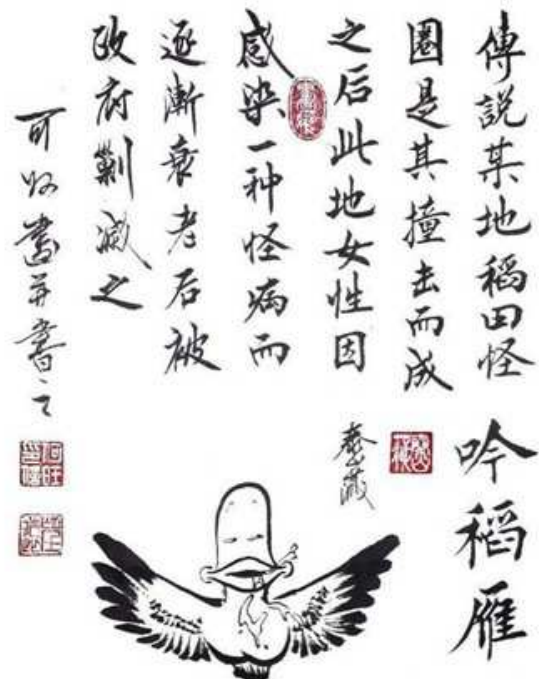 傳説某地稻田怪
圈是其撞击而成
之后此地女性因
感染一种怪病而
逐漸衰老后被
政府剿滅之
吟稻雁
可畫并書之